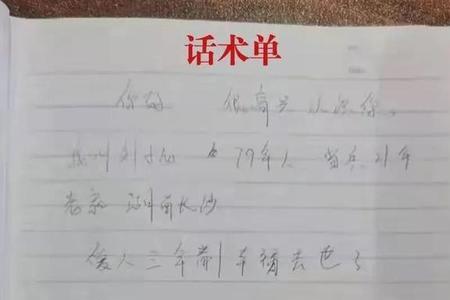 话术单
你好 很高兴认识你。
我叫刘 77年人 当兵21年
老家 湖南长沙
爱人三年前车祸去世了